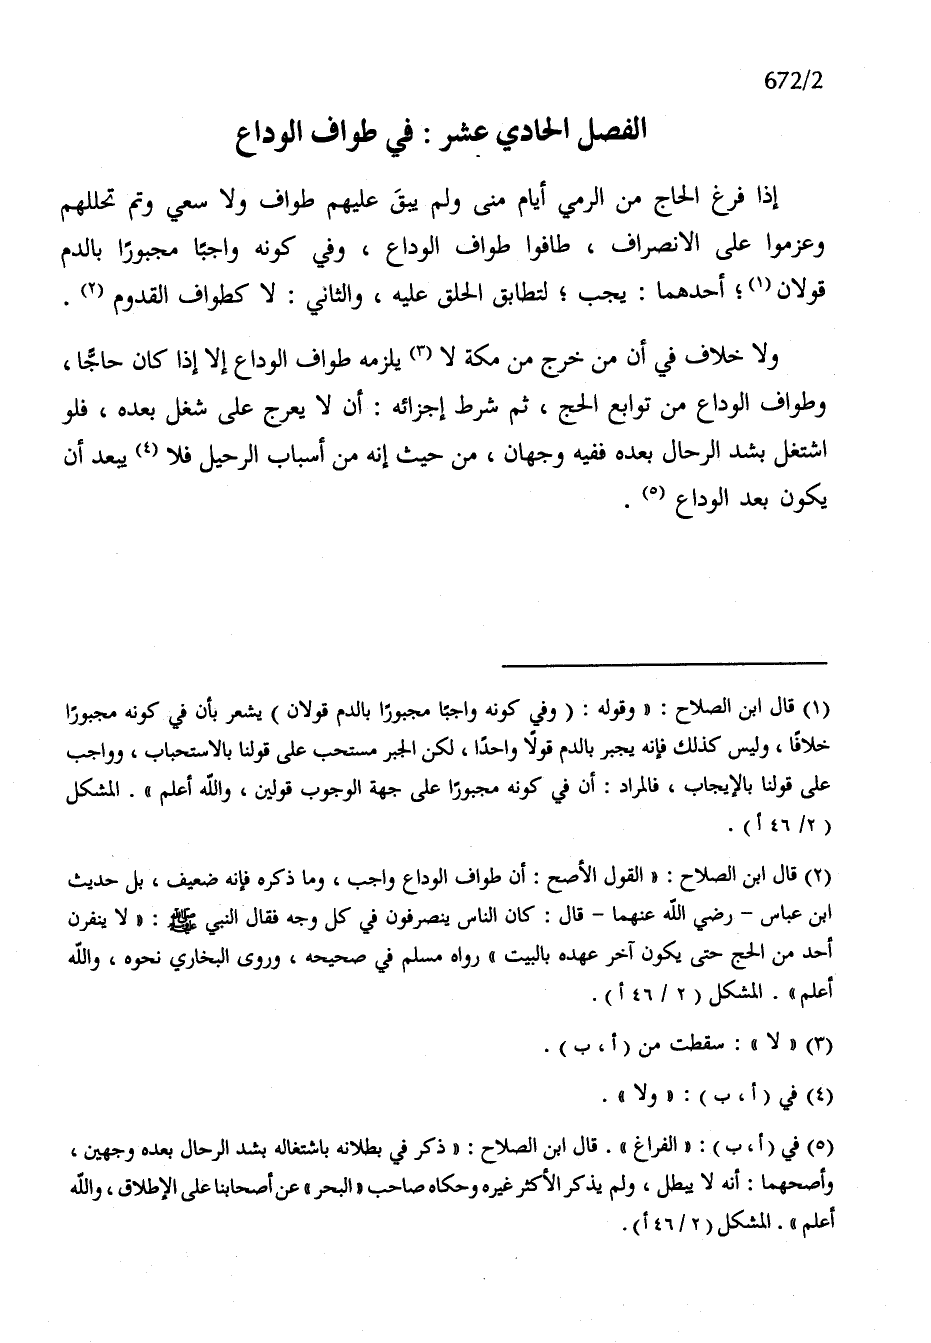 672/2
الفصل الحادي عشر : في طواف الوداع
إذا فرغ الحاج من الرمي أيام منى ولم يبقَ عليهم طواف ولا سعي وتم تحللهم
وعزموا على الانصراف ، طافوا طواف الوداع ، وفي كونه واجبًا مجبورًا بالدم
قولان (١) ؛ أحدهما : يجب ؛ لتطابق الخلق عليه ، والثاني : لا كطواف القدوم (٢) .
ولا خلاف في أن من خرج من مكة لا (٣) يلزمه طواف الوداع إلا إذا كان حاجًّا ،
وطواف الوداع من توابع الحج ، ثم شرط إجزائه : أن لا يعرج على شغل بعده ، فلو
اشتغل بشد الرحال بعده ففيه وجهان ، من حيث إنه من أسباب الرحيل فلا (٤) يبعد أن
يكون بعد الوداع (٥) .
(١) قال ابن الصلاح : « وقوله : ( وفي كونه واجبًا مجبورًا بالدم قولان ) يشعر بأن في كونه مجبورًا
خلافًا ، وليس كذلك فإنه يجبر بالدم قولًا واحدًا ، لكن الجبر مستحب على قولنا بالاستحباب ، وواجب
على قولنا بالإيجاب ، فالمراد : أن في كونه مجبورًا على جهة الوجوب قولين ، والله أعلم » . المشكل
( ٢/ ٤٦ أ ) .
(٢) قال ابن الصلاح : « القول الأصح : أن طواف الوداع واجب ، وما ذكره فإنه ضعيف ، بل حديث
ابن عباس – رضي الله عنهما – قال : كان الناس ينصرفون في كل وجه فقال النبي ﷺ : « لا ينفرن
أحد من الحج حتى يكون آخر عهده بالبيت » رواه مسلم في صحيحه ، وروى البخاري نحوه ، والله
أعلم » . المشكل ( ٢ / ٤٦ أ ) .
(٣) « لا » : سقطت من ( أ ، ب ) .
(٤) في ( أ ، ب ) : « ولا » .
(٥) في ( أ ، ب ) : « الفراغ » . قال ابن الصلاح : « ذكر في بطلانه باشتغاله بشد الرحال بعده وجهين ،
وأصحهما : أنه لا يبطل ، ولم يذكر الأكثر غيره وحكاه صاحب « البحر » عن أصحابنا على الإطلاق ، والله
أعلم » . المشكل ( ٢ / ٤٦ أ ) .